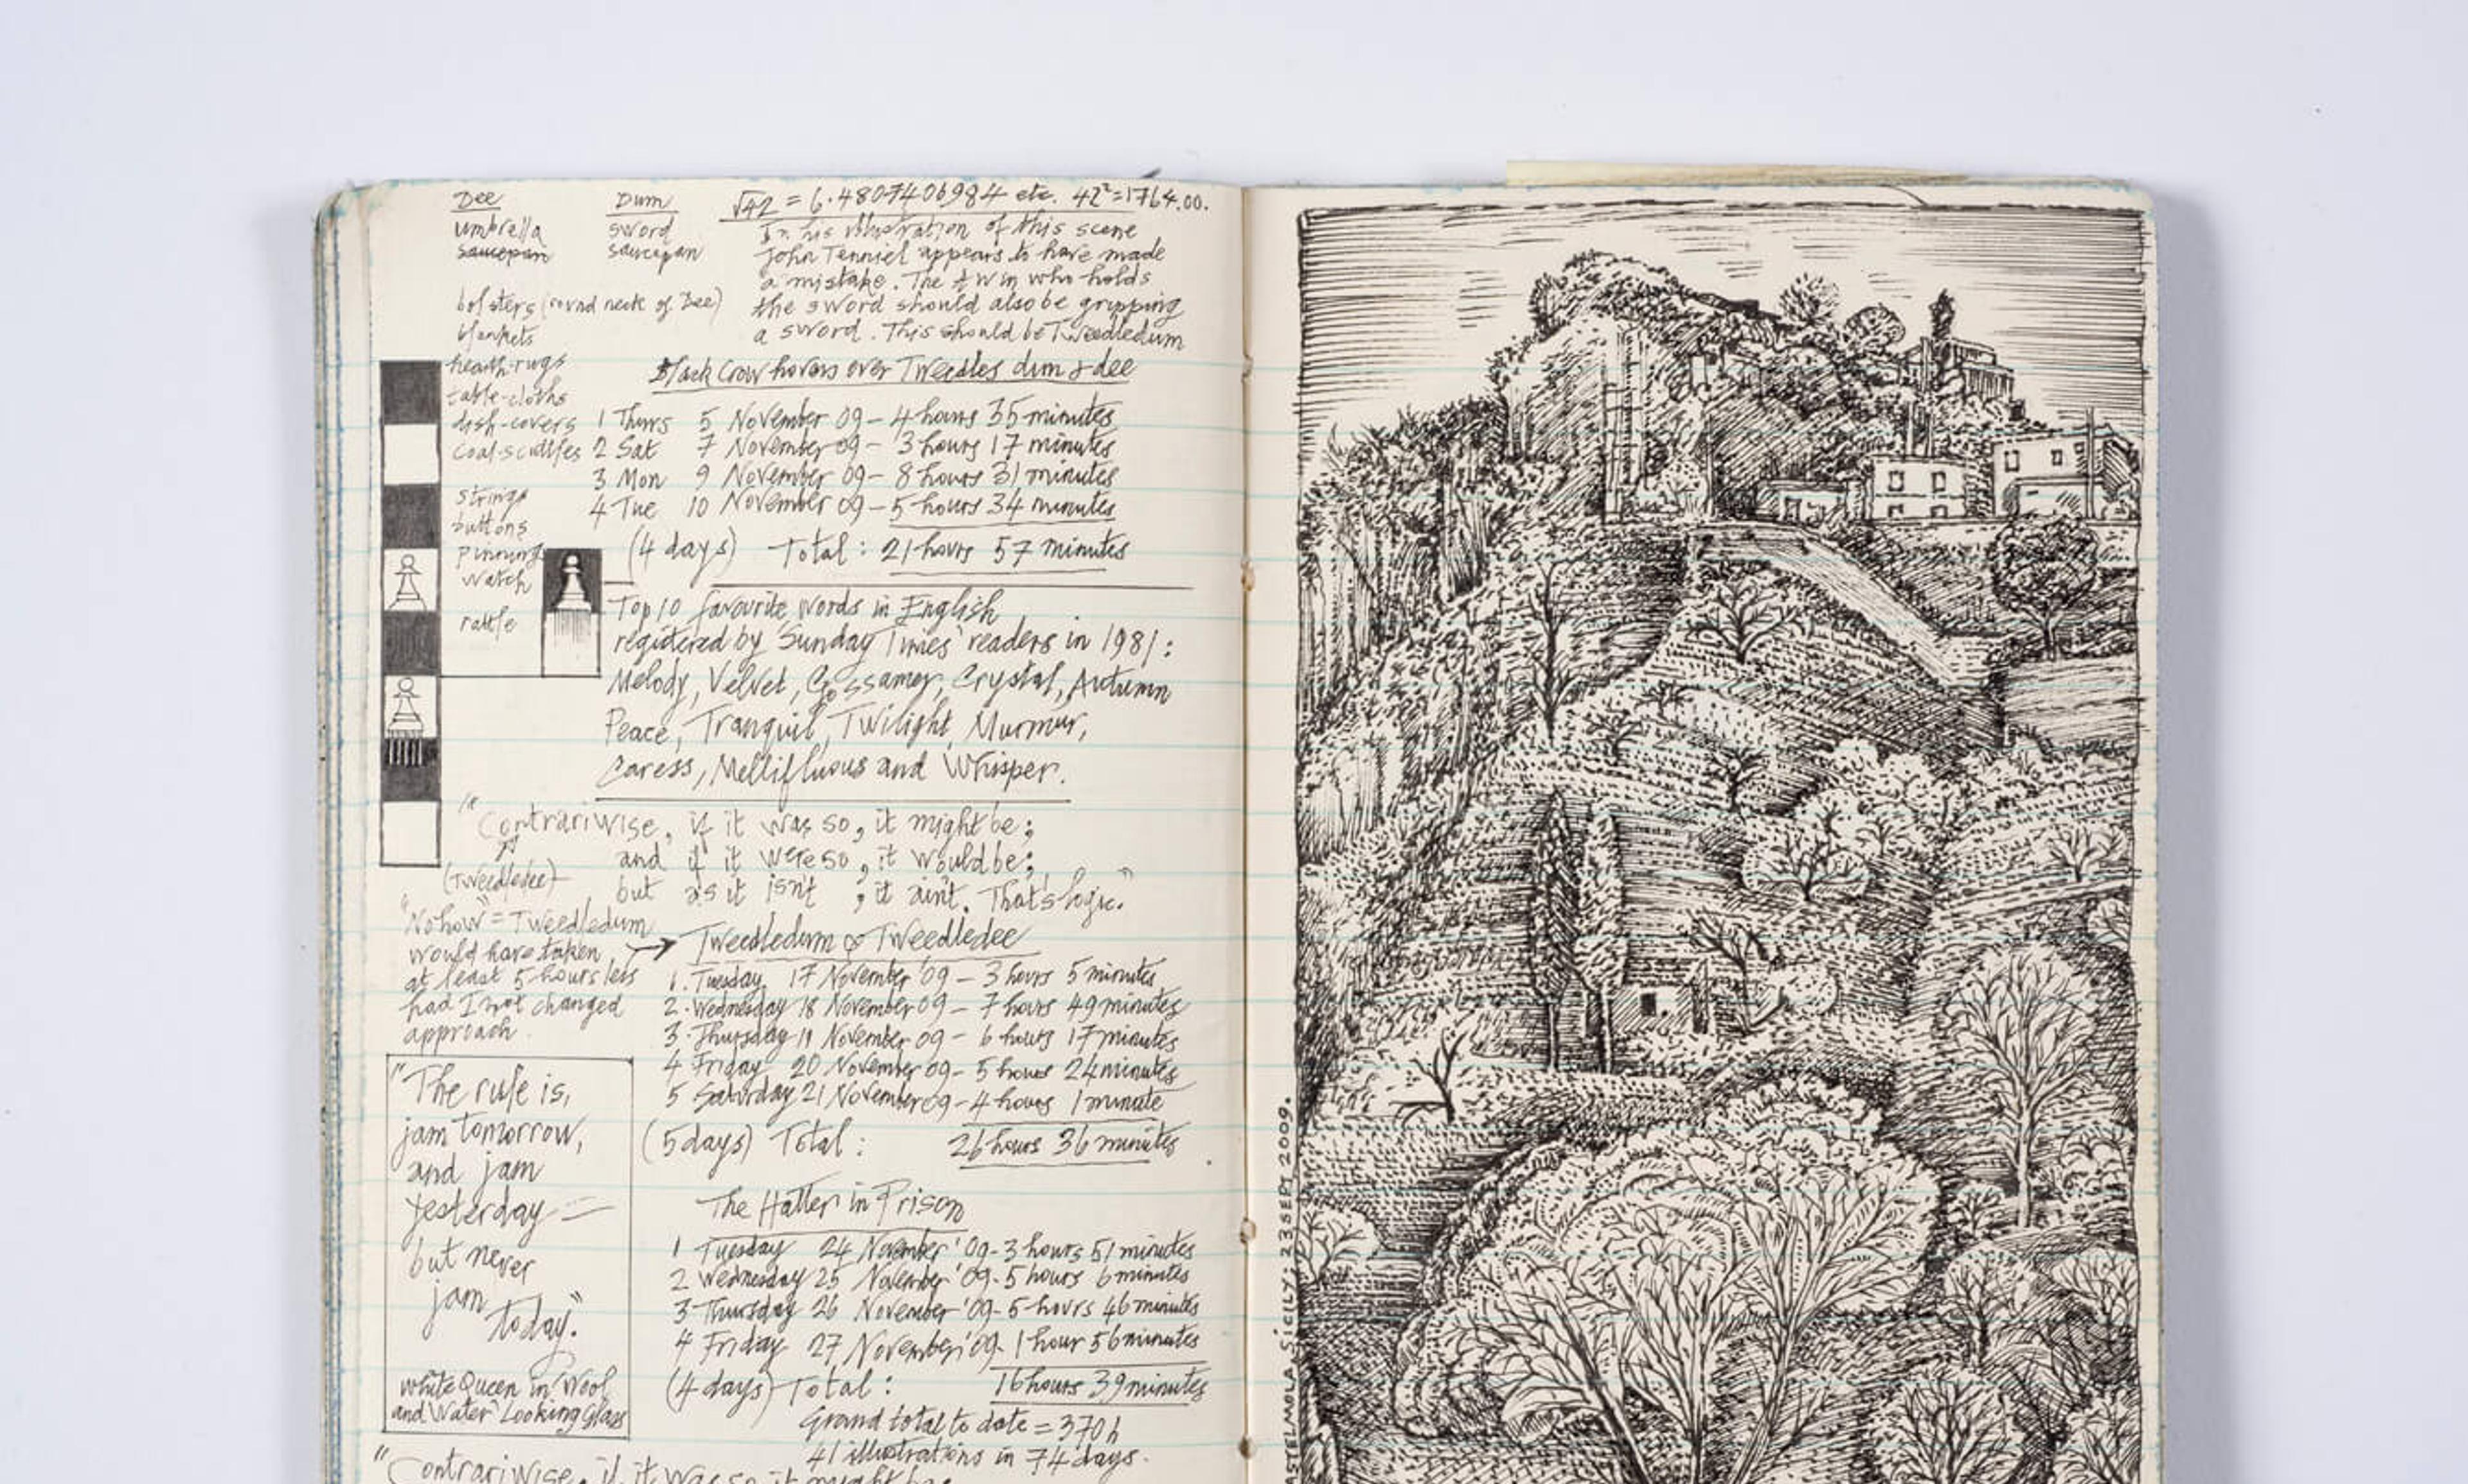 Dee Dum √42 = 6.4807406984 etc. 42²=1764.00.
umbrella sword
saucepan saucepan
bolsters (round neck of Dee)
blankets
hearth-rugs
table-cloths
dish-covers
coal-scuttles
strings
buttons
watch
rattle
In his illustration of this scene
John Tenniel appears to have made
a mistake. The twin who holds
the sword should also be gripping
a sword. This should be Tweedledum
Black Crow hovers over Tweedles dum & dee
1 Thurs 5 November 09 – 4 hours 35 minutes
2 Sat 7 November 09 – 3 hours 17 minutes
3 Mon 9 November 09 – 8 hours 31 minutes
4 Tue 10 November 09 – 5 hours 34 minutes
(4 days) Total: 21 hours 57 minutes
Top 10 favourite words in English
registered by 'Sunday Times' readers in 1981:
Melody, Velvet, Gossamer, Crystal, Autumn
Peace, Tranquil, Twilight, Murmur,
Caress, Mellifluous and Whisper.
"Contrariwise, if it was so, it might be;
and if it were so, it would be;
but as it isn't, it ain't. That's logic."
(Tweedledee)
"Nohow" = Tweedledum
would have taken
at least 5 hours less
had I not changed
approach.
Tweedledum & Tweedledee
1. Tuesday 17 November '09 – 3 hours 5 minutes
2. Wednesday 18 November 09 – 7 hours 49 minutes
3. Thursday 19 November 09 – 6 hours 17 minutes
4 Friday 20 November 09 – 5 hours 24 minutes
5 Saturday 21 November 09 – 4 hours 1 minute
(5 days) Total: 26 hours 36 minutes
"The rule is,
jam tomorrow,
and jam
yesterday –
but never
jam
today."
White Queen in 'Wool
and Water' Looking Glass
The Hatter in Prison
1 Tuesday 24 November '09 - 3 hours 51 minutes
2 Wednesday 25 November '09 - 5 hours 6 minutes
3 Thursday 26 November '09 - 5 hours 46 minutes
4 Friday 27 November '09 - 1 hour 56 minutes
(4 days) Total: 16 hours 39 minutes
Grand total to date = 370 h
41 illustrations in 74 days.
"Contrariwise, if it was so it might be
CASTELMOLA, SICILY: 23 SEPT 2009.